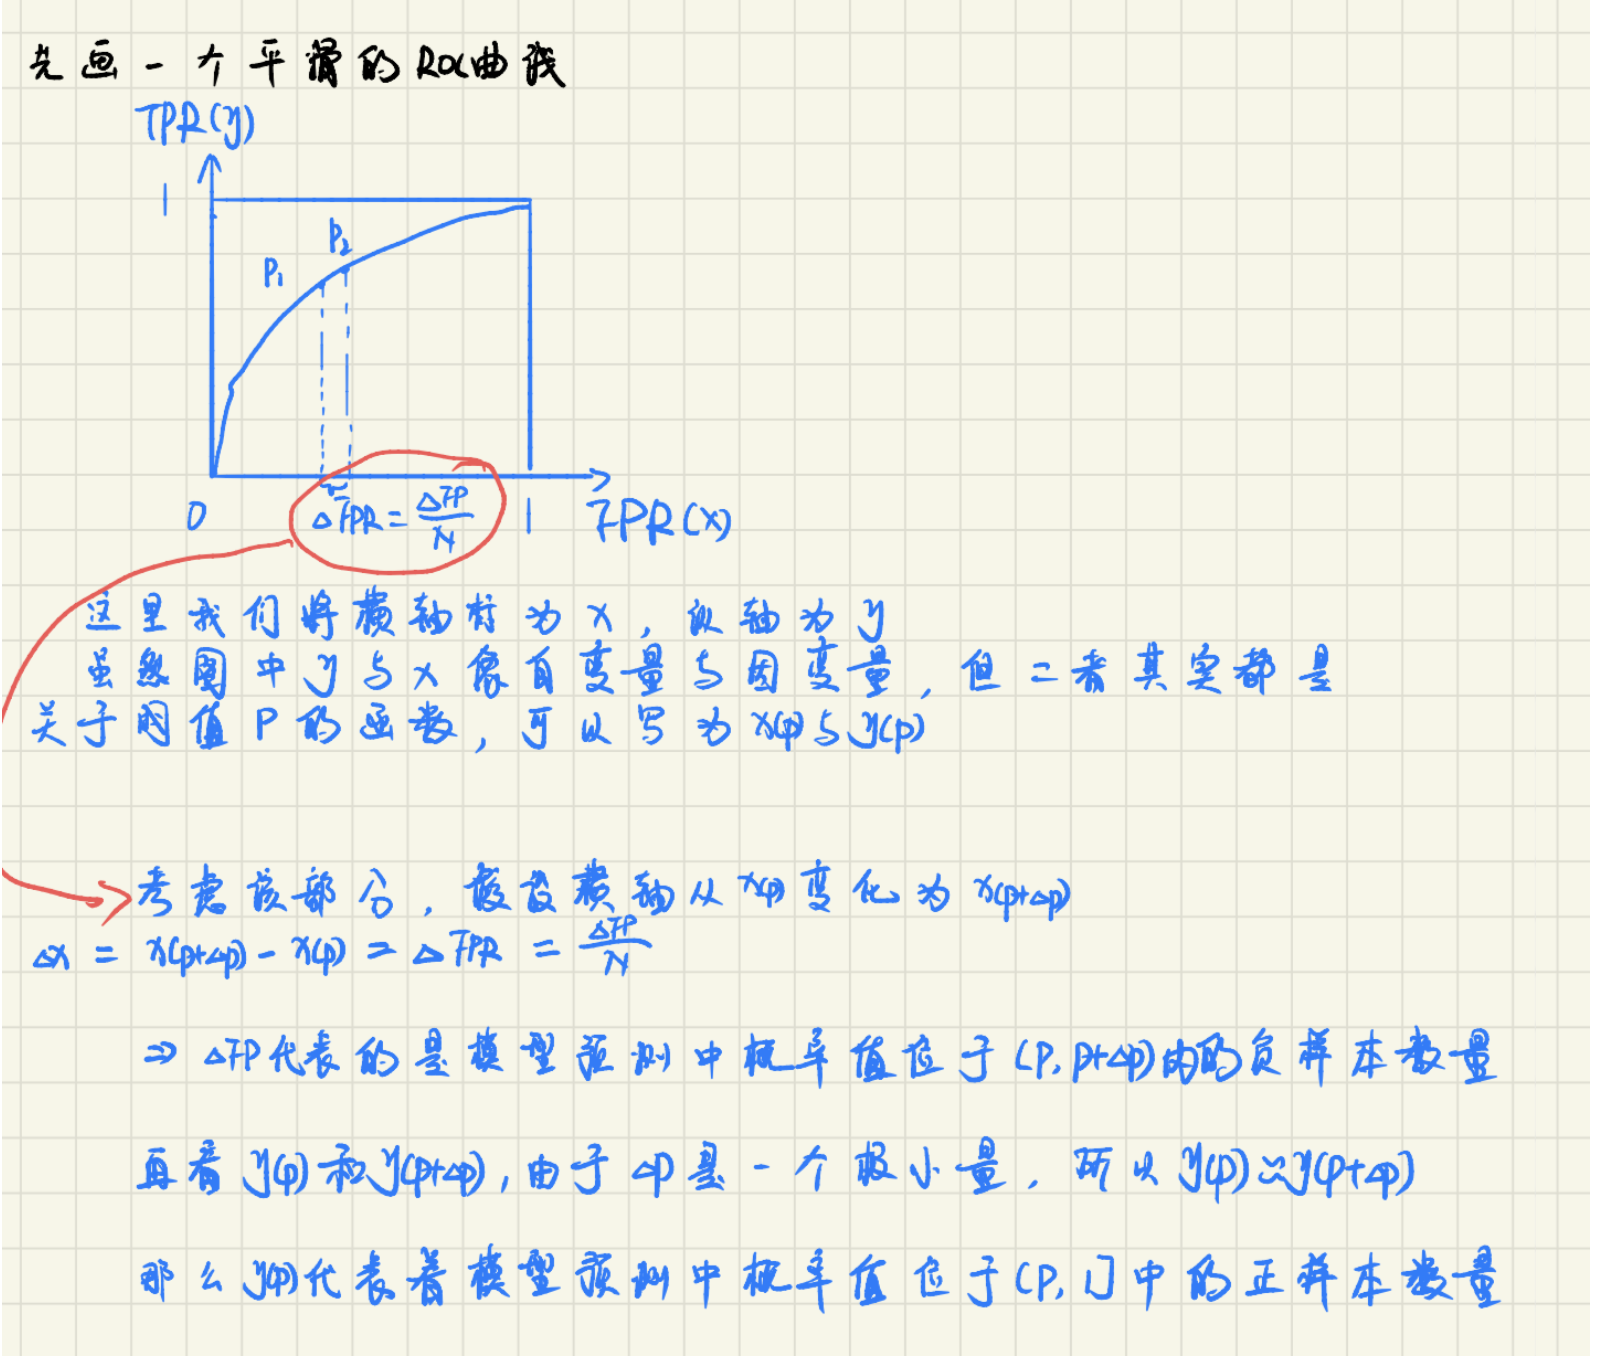 先画一个平滑的ROC曲线
TPR(y)
1
P₂
P₁
0
△FPR=△FP/N
1
FPR(x)
这里我们将横轴标为x，纵轴为y
虽然图中y与x像自变量与因变量，但二者其实都是
关于阈值P的函数，可以写为x(p)与y(p)
考虑该部分，假设横轴从x(p)变化为x(p+△p)
△x = x(p+△p)-x(p) = △FPR = △FP/N
⇒ △FP代表的是模型预测中概率值位于(P,P+△p)内的负样本数量
再看y(p)和y(p+△p),由于△p是一个极小量，所以y(p)≈y(p+△p)
那么y(p)代表着模型预测中概率值位于(P,1]中的正样本数量